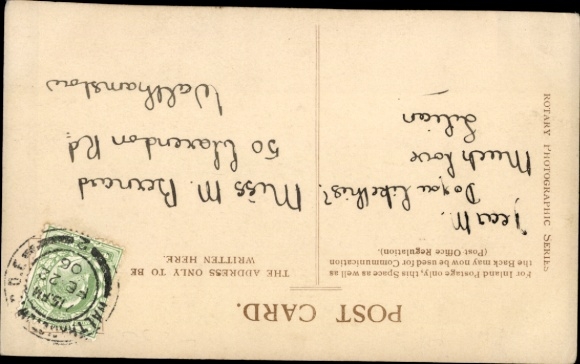 POST CARD.
For Inland Postage only, this Space as well as
the Back may now be used for Communication
(Post Office Regulation).
THE ADDRESS ONLY TO BE
WRITTEN HERE.
Dear M.
Do you like this?
Much love
Lilian
Miss M. Bernard
50 Clarendon Rd
Walthamstow
ROTARY PHOTOGRAPHIC SERIES
WALTHAMSTOW
06